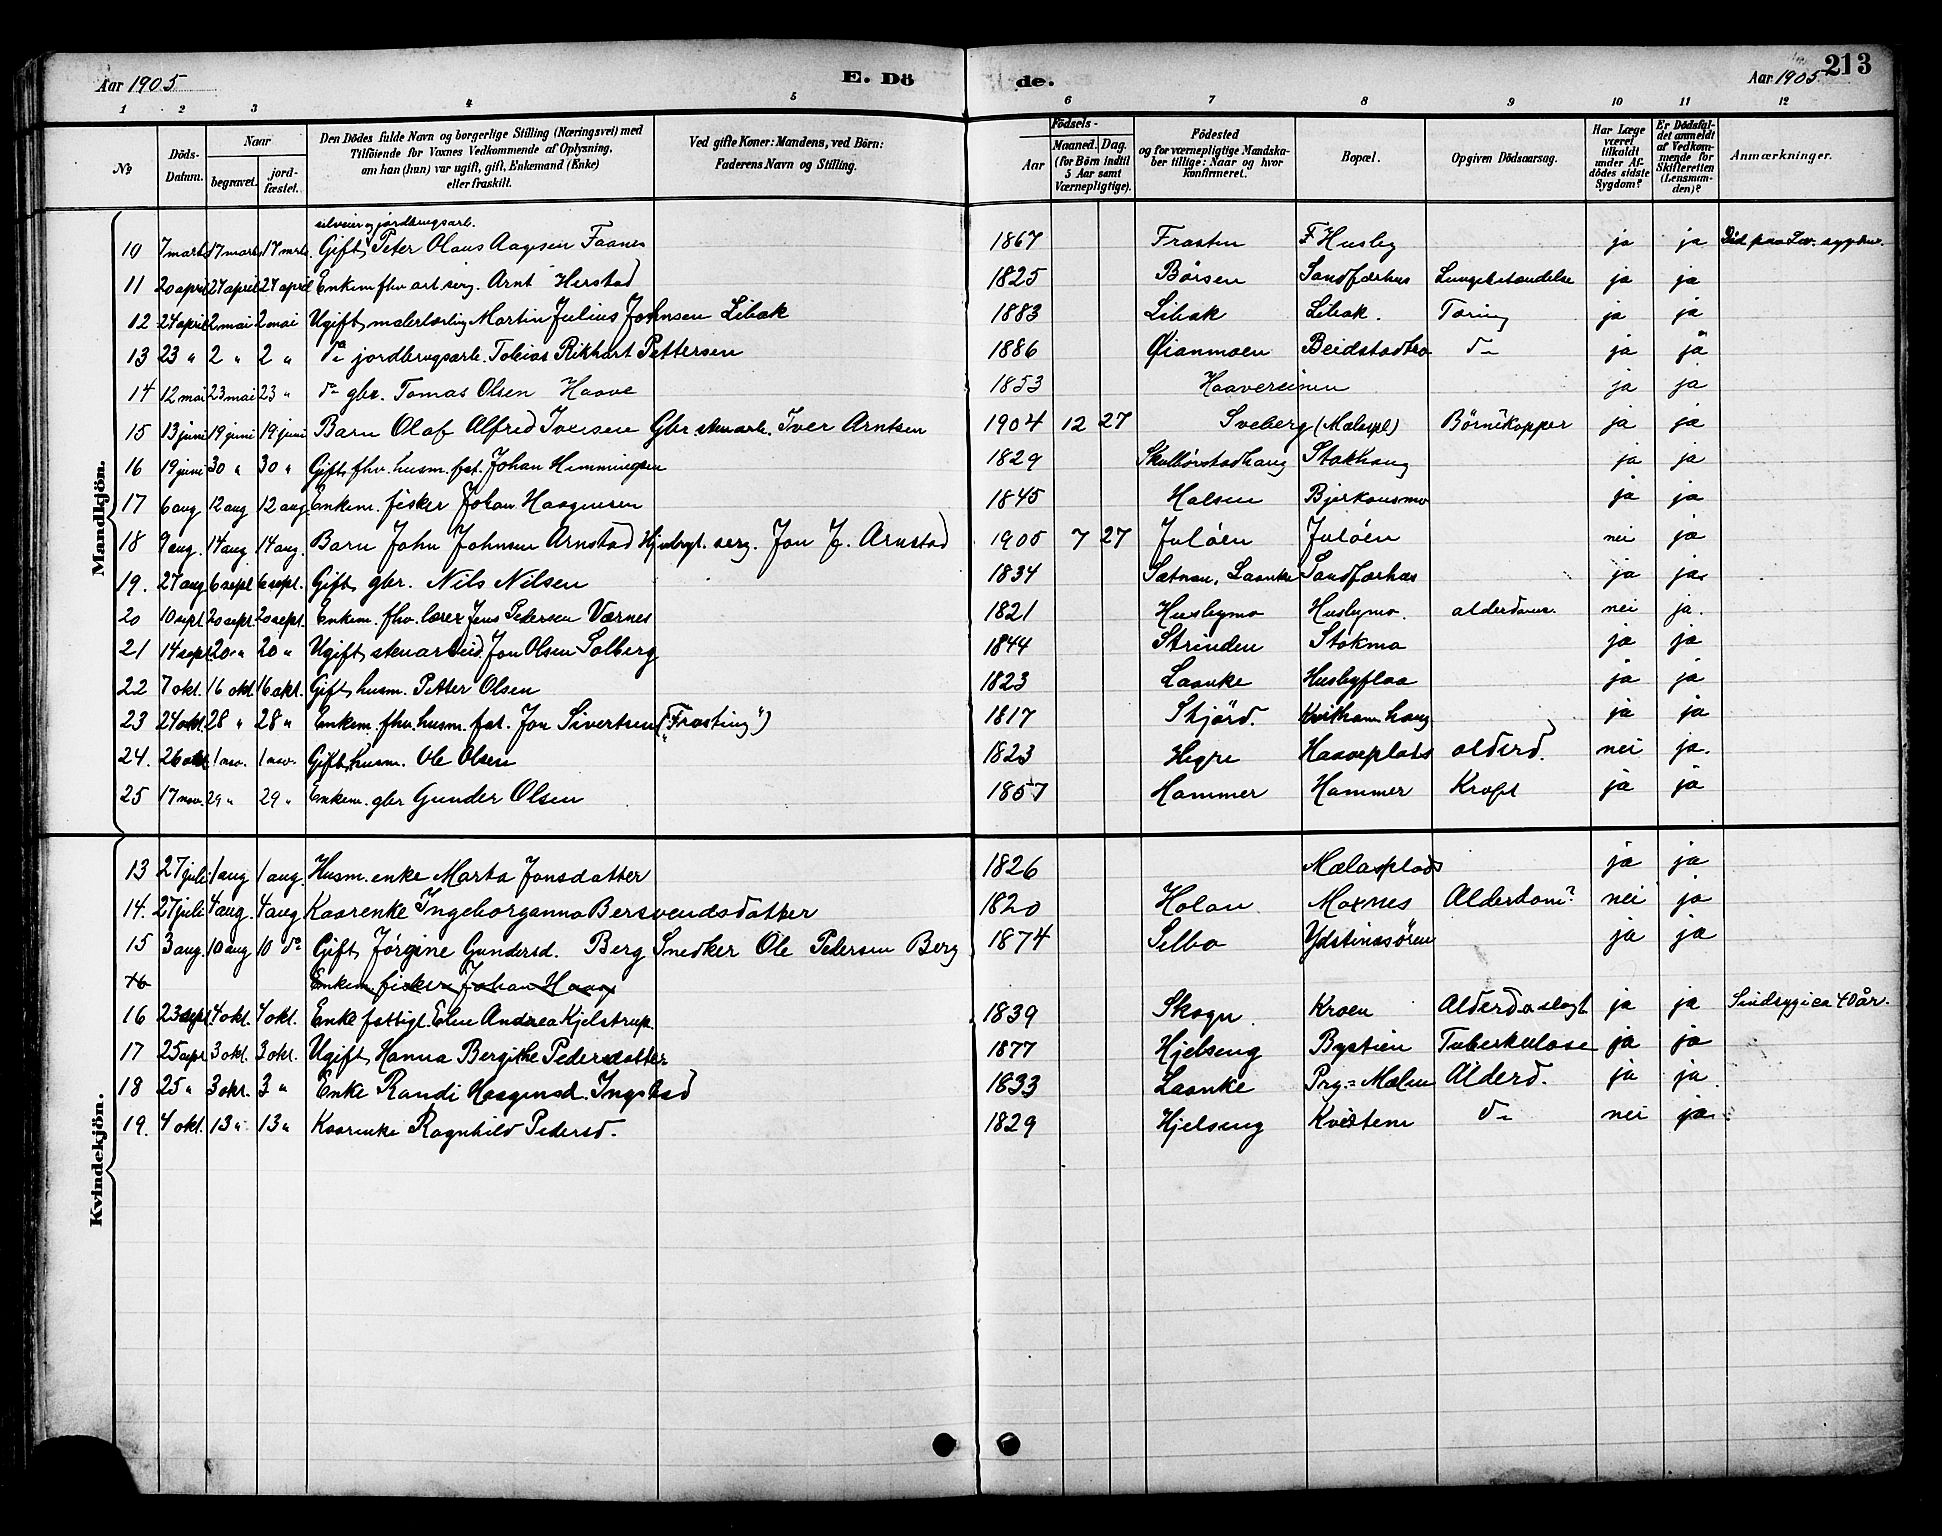 Aar 1905 E. Dö de. Aar 1905 213
1 2 3 4 5 6 7 8 9 10 11 12
№ Döds-Datum. Naar begravet. jord-fæstet. Den Dödes fulde Navn og borgerlige Stilling (Næringsvei) med Tilföiende for Voxnes Vedkommende af Oplysning, om han (hun) var ugift, gift, Enkemand (Enke) eller fraskilt. Ved gifte Koner: Mandens, ved Börn: Faderens Navn og Stilling. Födsels- Aar Maaned. Dag. (for Börn indtil 5 Aar samt Værnepligtige). Födested og for værnepligtige Mandska-ber tillige: Naar og hvor konfirmeret. Bopæl. Opgiven Dödsaarsag. Har Læge været tilkaldt under Af-dödes sidste Sygdom? Er Dödsfal-det anmeldt af Vedkom-mende for Skifteretten (Lensman-den)? Anmærkninger.
Mandkjön.
selveier og jordbrugsarb.
10 7 mart 17 mart 17 mrt. Gift, Peter Olaus Aagesen Faanes 1867 Frosten F Husby ja ja Död paa
11 20 april 27 april 27 april Enkem. fhv. art. serg. Arnt Herstad 1825 Börsen Sandfærhus Lungebetændelse ja ja
12 24 april 2 mai 2 mai Ugift, malerlærling Martin Julius Johnsen Libak 1883 Libak Libak. Tæring ja ja
13 23 " 2 " 2 " do jordbrugsarb. Tobias Rikhart Pettersen 1886 Øianmoen Beidstadtrø do ja ja
14 12 mai 23 mai 23 " do gbr. Tomas Olsen Haave 1853 Haavereinen ja ja
15 13 juni 19 juni 19 juni Barn Olaf Alfred Iversen Gbr. stenarb. Iver Arntsen 1904 12 27 Sveberg (Malvspl) Börnekopper ja ja
16 19 juni 30 " 30 " Gift, fhv. husm. fat. Johan Hemmingsen 1829 Skulbørstadhaug Stokhaug ja ja
17 6 aug 12 aug 12 aug. Enkem. fisker Johan Haagensen 1845 Halsen Bjerkansmo ja ja
18 9 aug. 14 aug 14 aug. Barn John Johnsen Arnstad Hjulmgt. serg. Jon J. Arnstad 1905 7 27 Juløen Juløen nei ja
19. 27 aug 6 sept 6 sept. Gift, gbr. Nils Nilsen 1834 Sætnan, Laanke Sandfærhus ja ja
20 10 sept 20 sept. 20 sept. Enkem. fhv. lærer Jens Pedersen Værnes 1821 Husbymo Husbymo. alderdoms. nei ja.
21 14 sept 20 " 20 " Ugift, stenarbeid Jon Olsen Solberg 1844 Strinden Stokmo ja ja
22 7 okt. 16 okt. 16 okt. Gift, husm. Petter Olsen 1823 Laanke Husbyflaa ja ja
23 24 okt. 28 " 28 " Enkem. fhv. husm. fat. Jon Sivertsen ("Frosting") 1817 Stjörd. Kvitham haug ja ja
24. 26 okt 1 nov. 1 nov. Gift, husm. Ole Olsen 1823 Hegre Haaveplads alderd. nei ja.
25 17 nov. 29 " 29 " Enkem. gbr Gunder Olsen 1857 Hammer Hammer Kræft ja ja
Kvindekjön.
13 27 juli 1 aug 1 aug. Husm. enke Marta Jonsdatter 1826 Mælasplads ja ja
14. 27 juli 4 aug. 4 aug Kaarenke Ingeborganna Bersvendsdatter 1820 Holan Moxnes Alderdom? nei ja
15 3 aug. 10 aug 10 do Gift, Jørgine Gundersd. Berg Snedker Ole Pedersen Berg 1874 Selbo Ydstinessören ja ja
16 Enkem. fisker Johan Haag
16 23 sept 4 okt. 4 okt. Enke fattigl. Elen Andrea Kjelstrup. 1839 Skogn Kroen Alderd. o slagt ja ja Sindsyg i ca 40 år.
17 25 sept 3 okt. 3 okt. Ugift, Hanna Bergithe Pedersdatter 1877 Hjelseng Bystien Tuberkulose ja ja
18 25 " 3 okt. 3 " Enke Randi Haagensd. Ingstad 1833 Laanke Prg. Mælen Alderd. ja ja
19. 4 okt. 13 " 13 " Kaarenke Ragnhild Pedersd. 1829 Hjelseng Kvistem do nei ja.